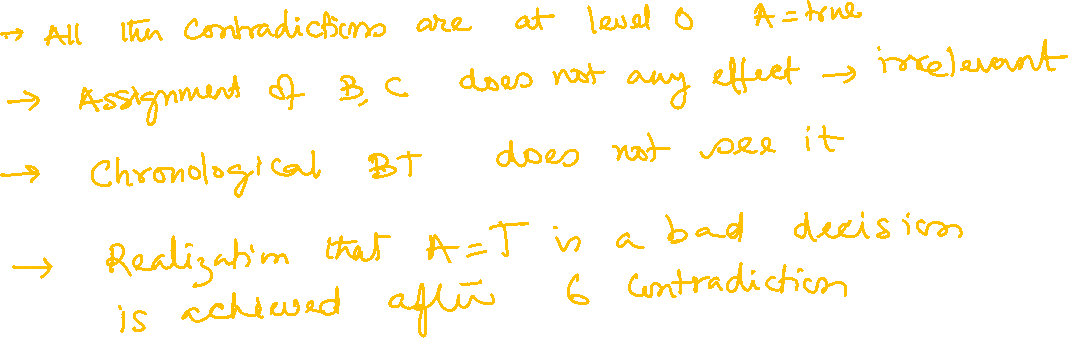 → All the contradictions are at level 0 A = true
→ Assignment of B, C does not any effect → irrelevant
→ Chronological BT does not see it
→ Realization that A = T is a bad decision
is achieved after 6 contradiction